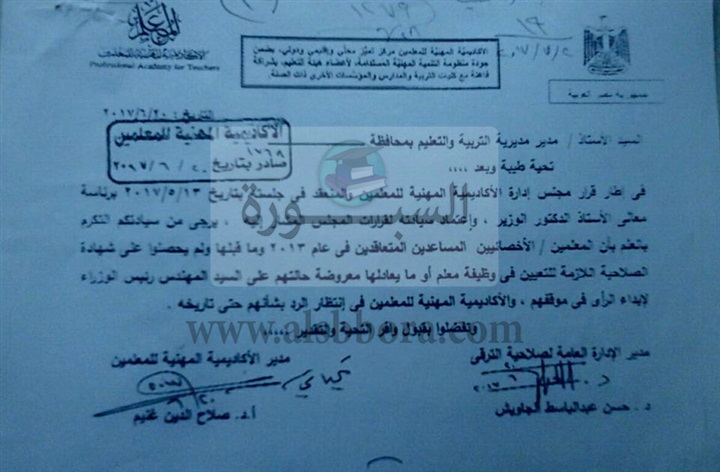 المعلم
الأكاديمية المهنية للمعلمين
Professional Academy for Teachers
الأكاديمية المهنية للمعلمين مركز تميز محلي وإقليمي ودولي، يضمن
جودة منظومة التنمية المهنية المستدامة، لأعضاء هيئة التعليم، بشراكة
فاعلة مع كليات التربية والمدارس والمؤسسات الأخرى ذات الصلة.
جمهورية مصر العربية
التاريخ: ٢٠١٧/٦/٢٠
الأكاديمية المهنية للمعلمين
١٧٦٩
صادر بتاريخ ٢٠١٧/٦/٢٠
السيد الأستاذ / مدير مديرية التربية والتعليم بمحافظة
تحية طيبة وبعد ،،،،
فى إطار قرار مجلس إدارة الأكاديمية المهنية للمعلمين والمنعقد فى جلسته بتاريخ ٢٠١٧/٥/١٣ برئاسة
معالى الأستاذ الدكتور الوزير ، وإعتماد سيادته لقرارات المجلس المشار إليه ، يرجى من سيادتكم التكرم
بالعلم بأن المعلمين / الأخصائيين المساعدين المتعاقدين فى عام ٢٠١٣ وما قبلها ولم يحصلوا على شهادة
الصلاحية اللازمة للتعيين فى وظيفة معلم أو ما يعادلها معروضة حالتهم على السيد المهندس رئيس الوزراء
لإبداء الرأى فى موقفهم ، والأكاديمية المهنية للمعلمين فى إنتظار الرد بشأنهم حتى تاريخه .
وتفضلوا بقبول وافر التحية والتقدير ،،،،،
السبورة
www.alsbbora.com
مدير الإدارة العامة لصلاحية الترقى
مدير الأكاديمية المهنية للمعلمين
د . حسن عبدالباسط الجاويش
أ.د. صلاح الدين غنيم